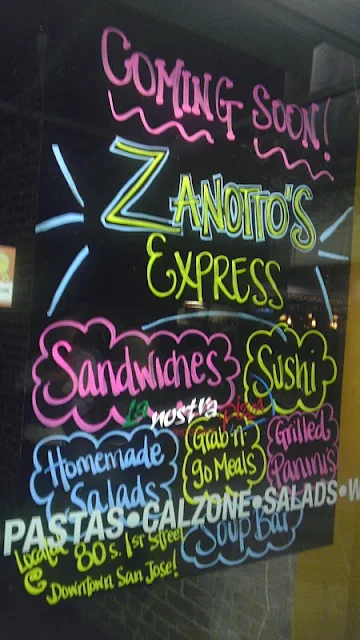 COMING SOON!
ZANOTTO'S
EXPRESS
Sandwiches
Sushi
La nostra
Homemade Salads
Grab n' go Meals
Grilled Panini's
PASTAS•CALZONE•SALADS•W
Soup Bar
Located
@ 80 S. 1st Street
Downtown San Jose!